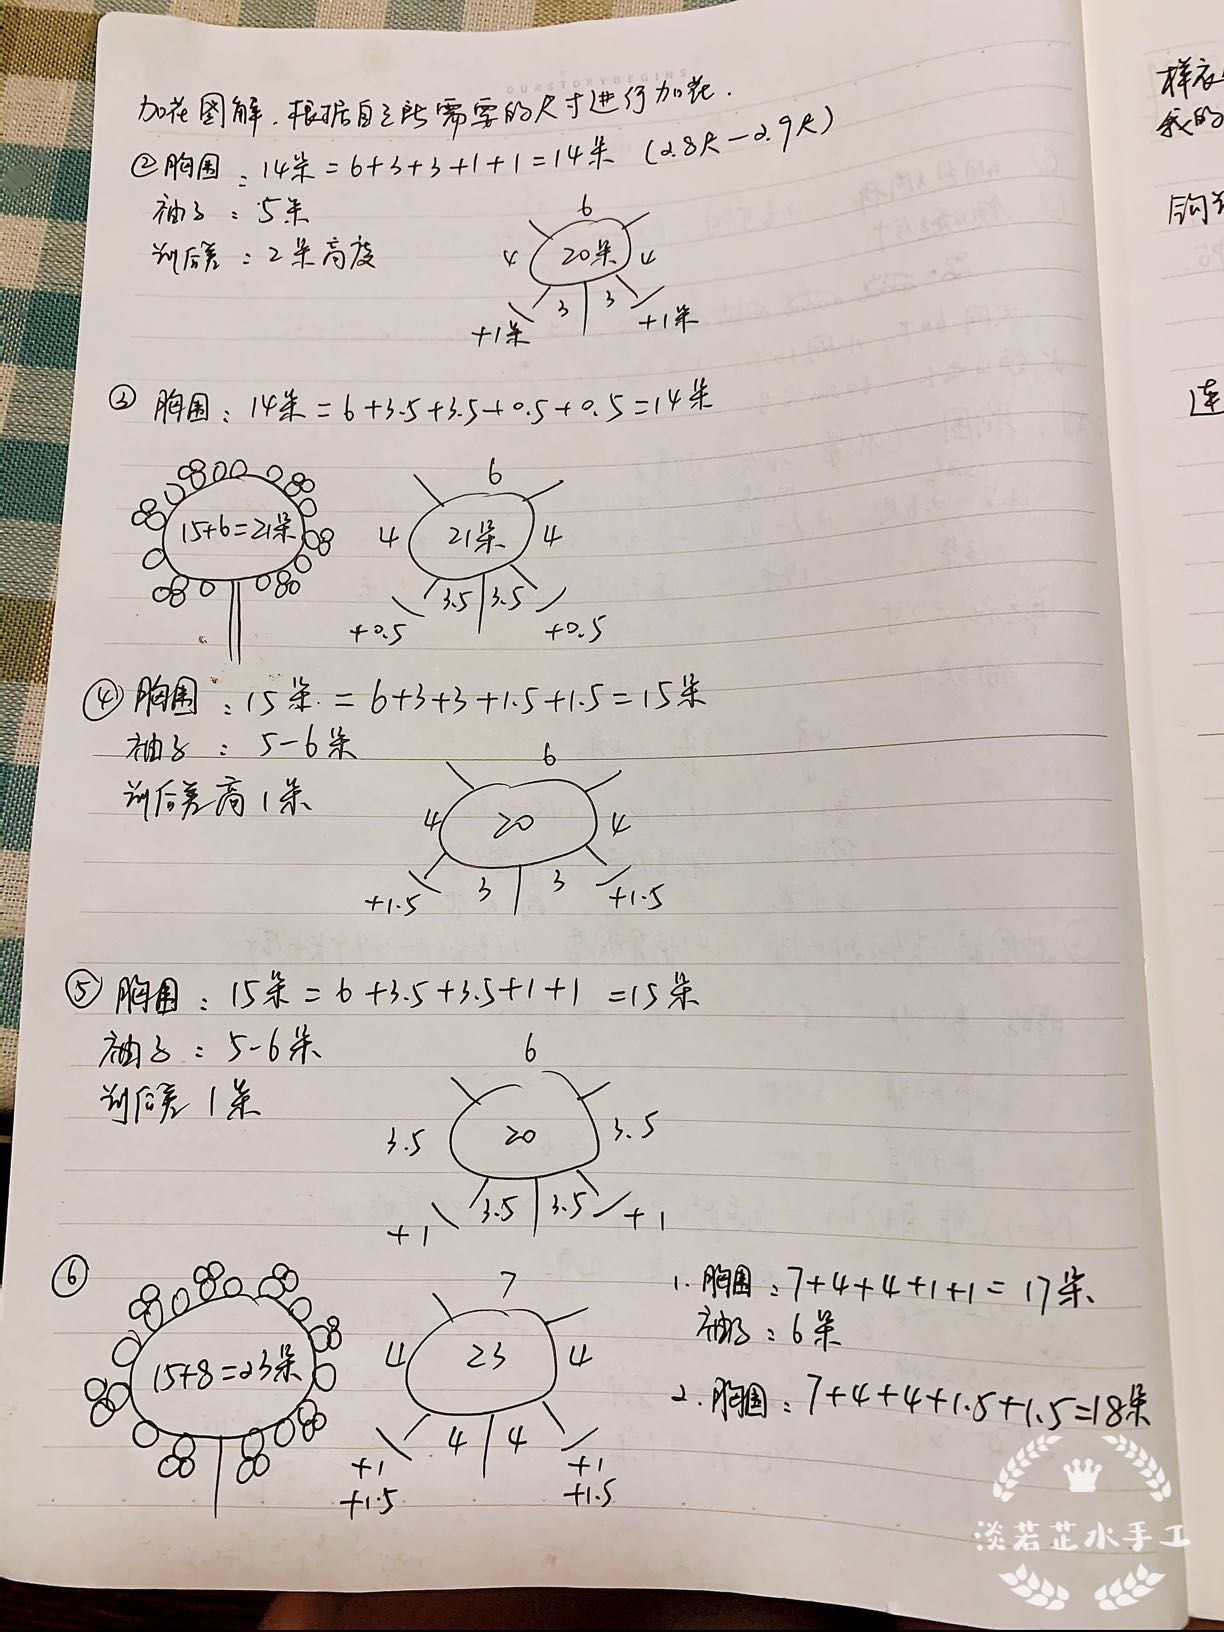 OURSTORYBEGINS
加花图解.根据自己所需要的尺寸进行加花.
②胸围:14朵=6+3+3+1+1=14朵 (2.8尺-2.9尺)
袖子:5朵
前后差:2朵高度
6
4 20朵 4
3 3
+1朵 +1朵
③ 胸围:14朵=6+3.5+3.5+0.5+0.5=14朵
15+6=21朵
6
4 21朵 4
3.5 3.5
+0.5 +0.5
④胸围:15朵.=6+3+3+1.5+1.5=15朵
袖子:5-6朵
前后差高1朵
6
4 20 4
3 3
+1.5 +1.5
⑤胸围:15朵=6+3.5+3.5+1+1=15朵
袖子:5-6朵
前后差1朵
6
3.5 20 3.5
3.5 3.5
+1 +1
⑥
15+8=23朵
7
4 23 4
4 4
+1 +1
+1.5 +1.5
1.胸围:7+4+4+1+1=17朵
袖子:6朵
2.胸围:7+4+4+1.5+1.5=18朵
样衣
我的
钩
连
淡若芷水手工